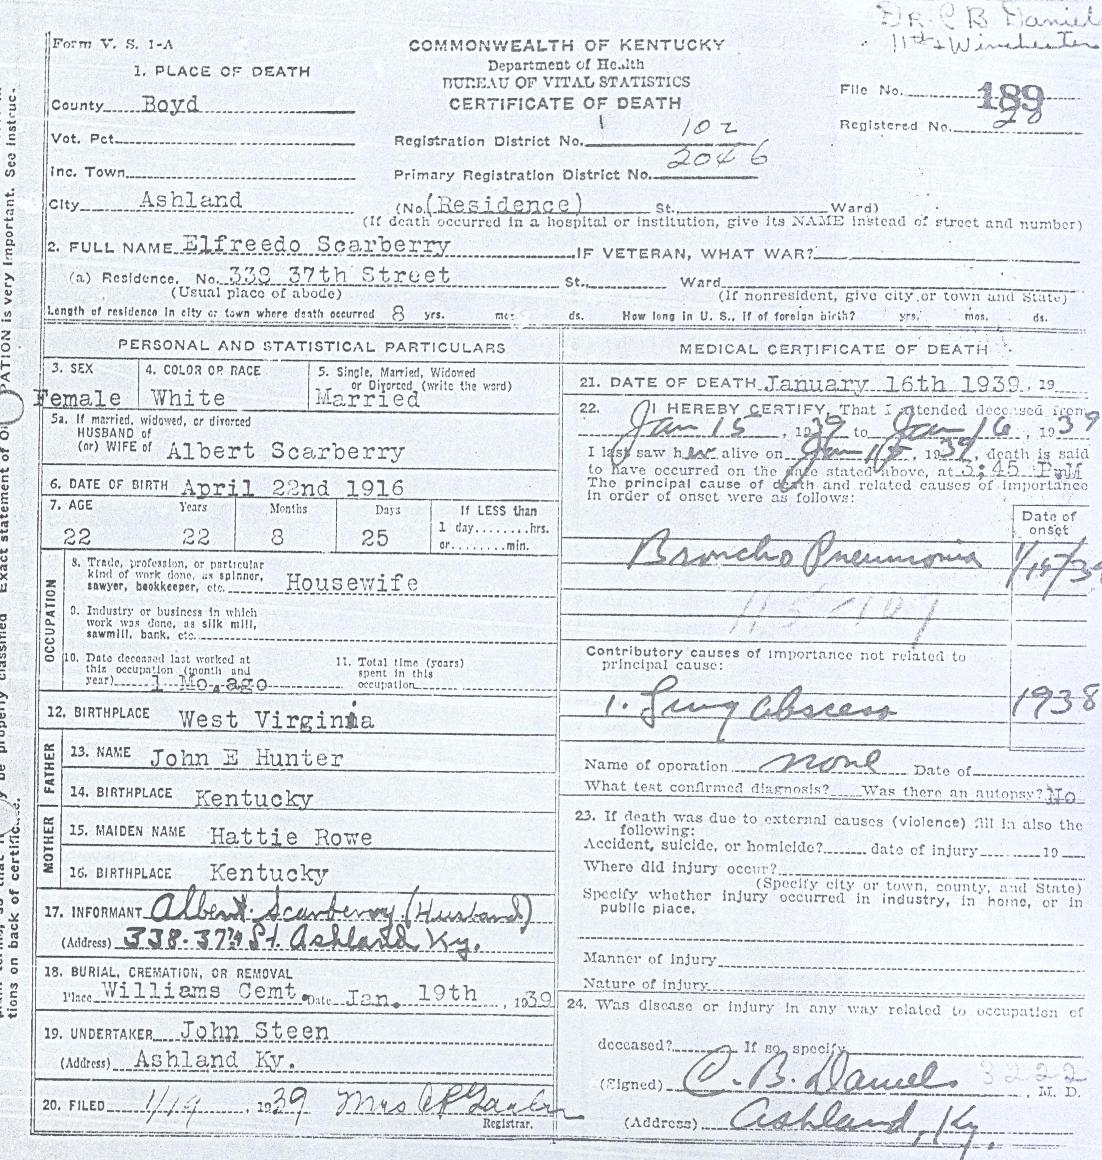 DR. C B Daniel
11th & Winchester
Form V. S. 1-A
COMMONWEALTH OF KENTUCKY
Department of Health
BUREAU OF VITAL STATISTICS
CERTIFICATE OF DEATH
1. PLACE OF DEATH
County Boyd
File No. 189
Registered No. 20
Vot. Pct.
Registration District No. 102
Inc. Town
Primary Registration District No. 2046
City Ashland
(No. (Residence) St., Ward)
(If death occurred in a hospital or institution, give its NAME instead of street and number)
2. FULL NAME Elfreedo Scarberry IF VETERAN, WHAT WAR?
(a) Residence. No. 339 37th Street St., Ward
(Usual place of abode) (If nonresident, give city or town and State)
Length of residence in city or town where death occurred 8 yrs. mos. ds. How long in U. S., if of foreign birth? yrs. mos. ds.
PERSONAL AND STATISTICAL PARTICULARS
3. SEX Female
4. COLOR OR RACE White
5. Single, Married, Widowed
or Divorced (write the word)
Married
5a. If married, widowed, or divorced
HUSBAND of
(or) WIFE of Albert Scarberry
6. DATE OF BIRTH April 22nd 1916
7. AGE Years Months Days If LESS than
22 22 8 25 1 day........hrs.
or........min.
OCCUPATION
8. Trade, profession, or particular
kind of work done, as spinner,
sawyer, bookkeeper, etc. Housewife
9. Industry or business in which
work was done, as silk mill,
sawmill, bank, etc.
10. Date deceased last worked at
this occupation (month and
year) 1 Mo. ago
11. Total time (years)
spent in this
occupation
12. BIRTHPLACE West Virginia
FATHER
13. NAME John E Hunter
14. BIRTHPLACE Kentucky
MOTHER
15. MAIDEN NAME Hattie Rowe
16. BIRTHPLACE Kentucky
17. INFORMANT Albert Scarberry (Husband)
(Address) 338-37th St. Ashland Ky.
18. BURIAL, CREMATION, OR REMOVAL
Place Williams Cemt. Date Jan. 19th, 1939
19. UNDERTAKER John Steen
(Address) Ashland Ky.
20. FILED 1/19, 1939 Mrs
Registrar.
MEDICAL CERTIFICATE OF DEATH
21. DATE OF DEATH January 16th 1939, 19
22. I HEREBY CERTIFY, That I attended deceased from
Jan 15, 1939 to Jan 16, 1939
I last saw her alive on Jan, 1939, death is said
to have occurred on the date stated above, at 3:45 P.M
The principal cause of death and related causes of importance
in order of onset were as follows:
Date of
onset
Broncho Pneumonia 1/15/39
Contributory causes of importance not related to
principal cause:
1. Lung abscess 1938
Name of operation none Date of
What test confirmed diagnosis? Was there an autopsy? No
23. If death was due to external causes (violence) fill in also the
following:
Accident, suicide, or homicide? date of injury 19
Where did injury occur?
(Specify city or town, county, and State)
Specify whether injury occurred in industry, in home, or in
public place.
Manner of injury
Nature of injury
24. Was disease or injury in any way related to occupation of
deceased? If so, specify
(Signed) C. B. Daniels 3222, M. D.
(Address) Ashland, Ky.
be properly classified Exact statement of PATION is very important. See instruc-
tions on back of certificate.